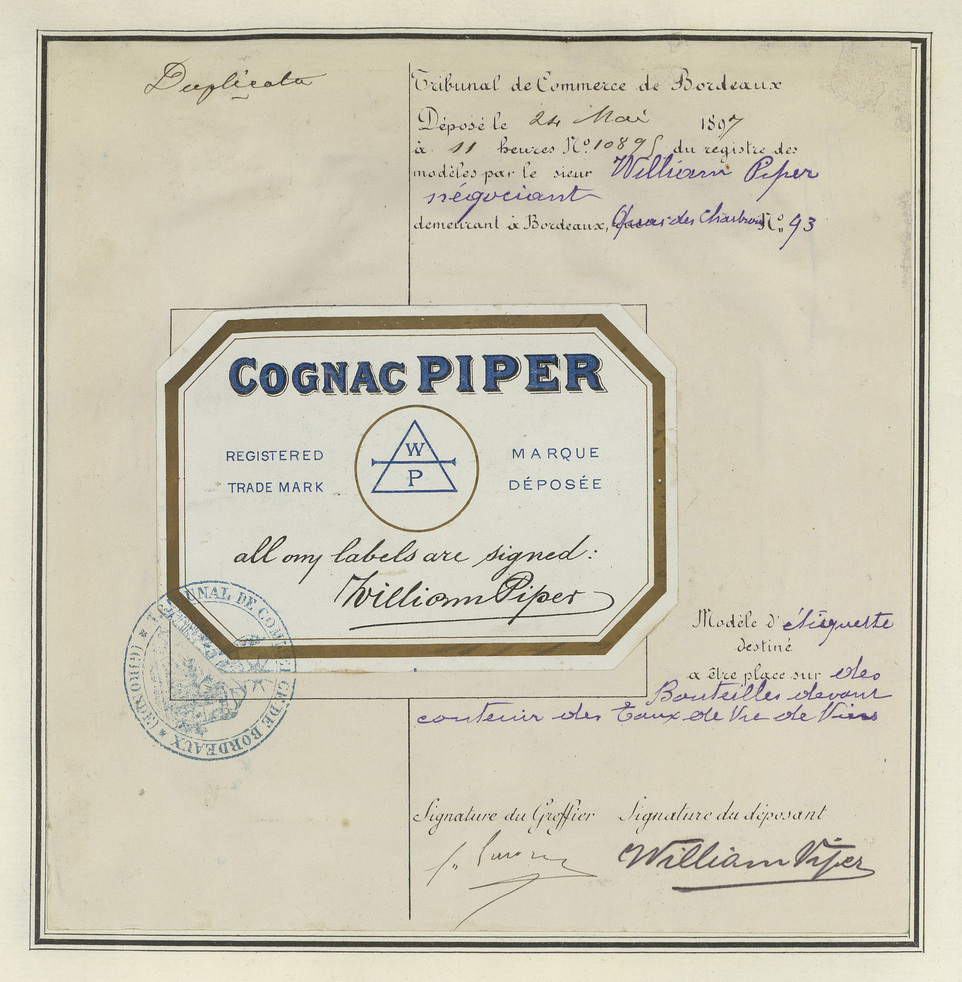 Duplicata
Tribunal de Commerce de Bordeaux
Déposé le 24 Mai 1897
à 11 heures No. 10895 du registre des
modèles par le sieur William Piper
négociant
demeurant à Bordeaux, Quai des Chartrons No. 93
COGNAC PIPER
REGISTERED
TRADE MARK
W
P
MARQUE
DÉPOSÉE
all my labels are signed:
William Piper
TRIBUNAL DE COMMERCE DE BORDEAUX * (GIRONDE) *
Modèle d'étiquette
destiné
a être placé sur des
Bouteilles devant
contenir des Eaux de Vie de Vins
Signature du Greffier
Signature du déposant
William Piper